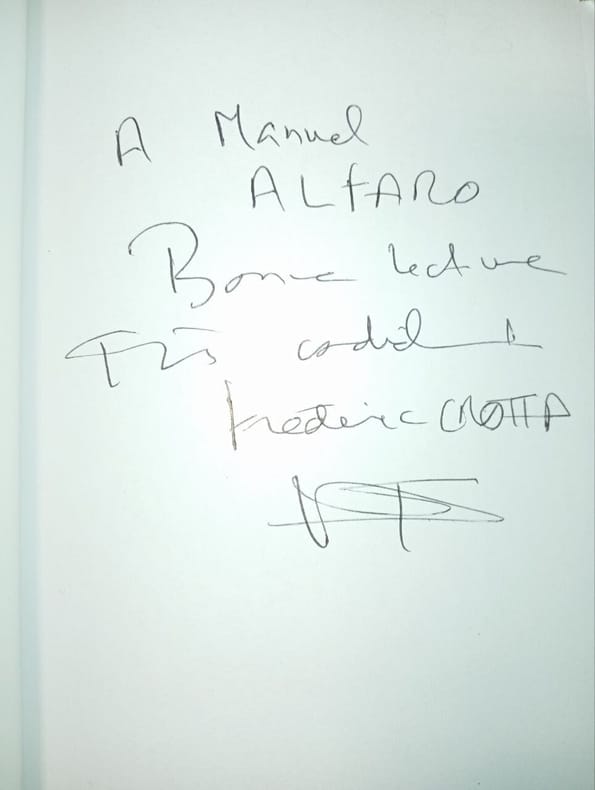 A Manuel
ALFARO
Bonne lecture
Très cordialement
Frédéric CROTTA